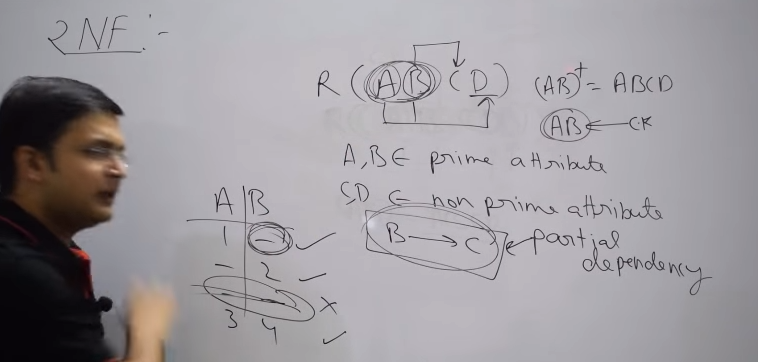 2NF :-
R (A B C D) (AB)⁺ = ABCD
AB ← CK
A,B ∈ prime attribute
C,D ∈ non prime attribute
B → C ← partial dependency
A | B
1 | -
- | 2
- | -
3 | 4